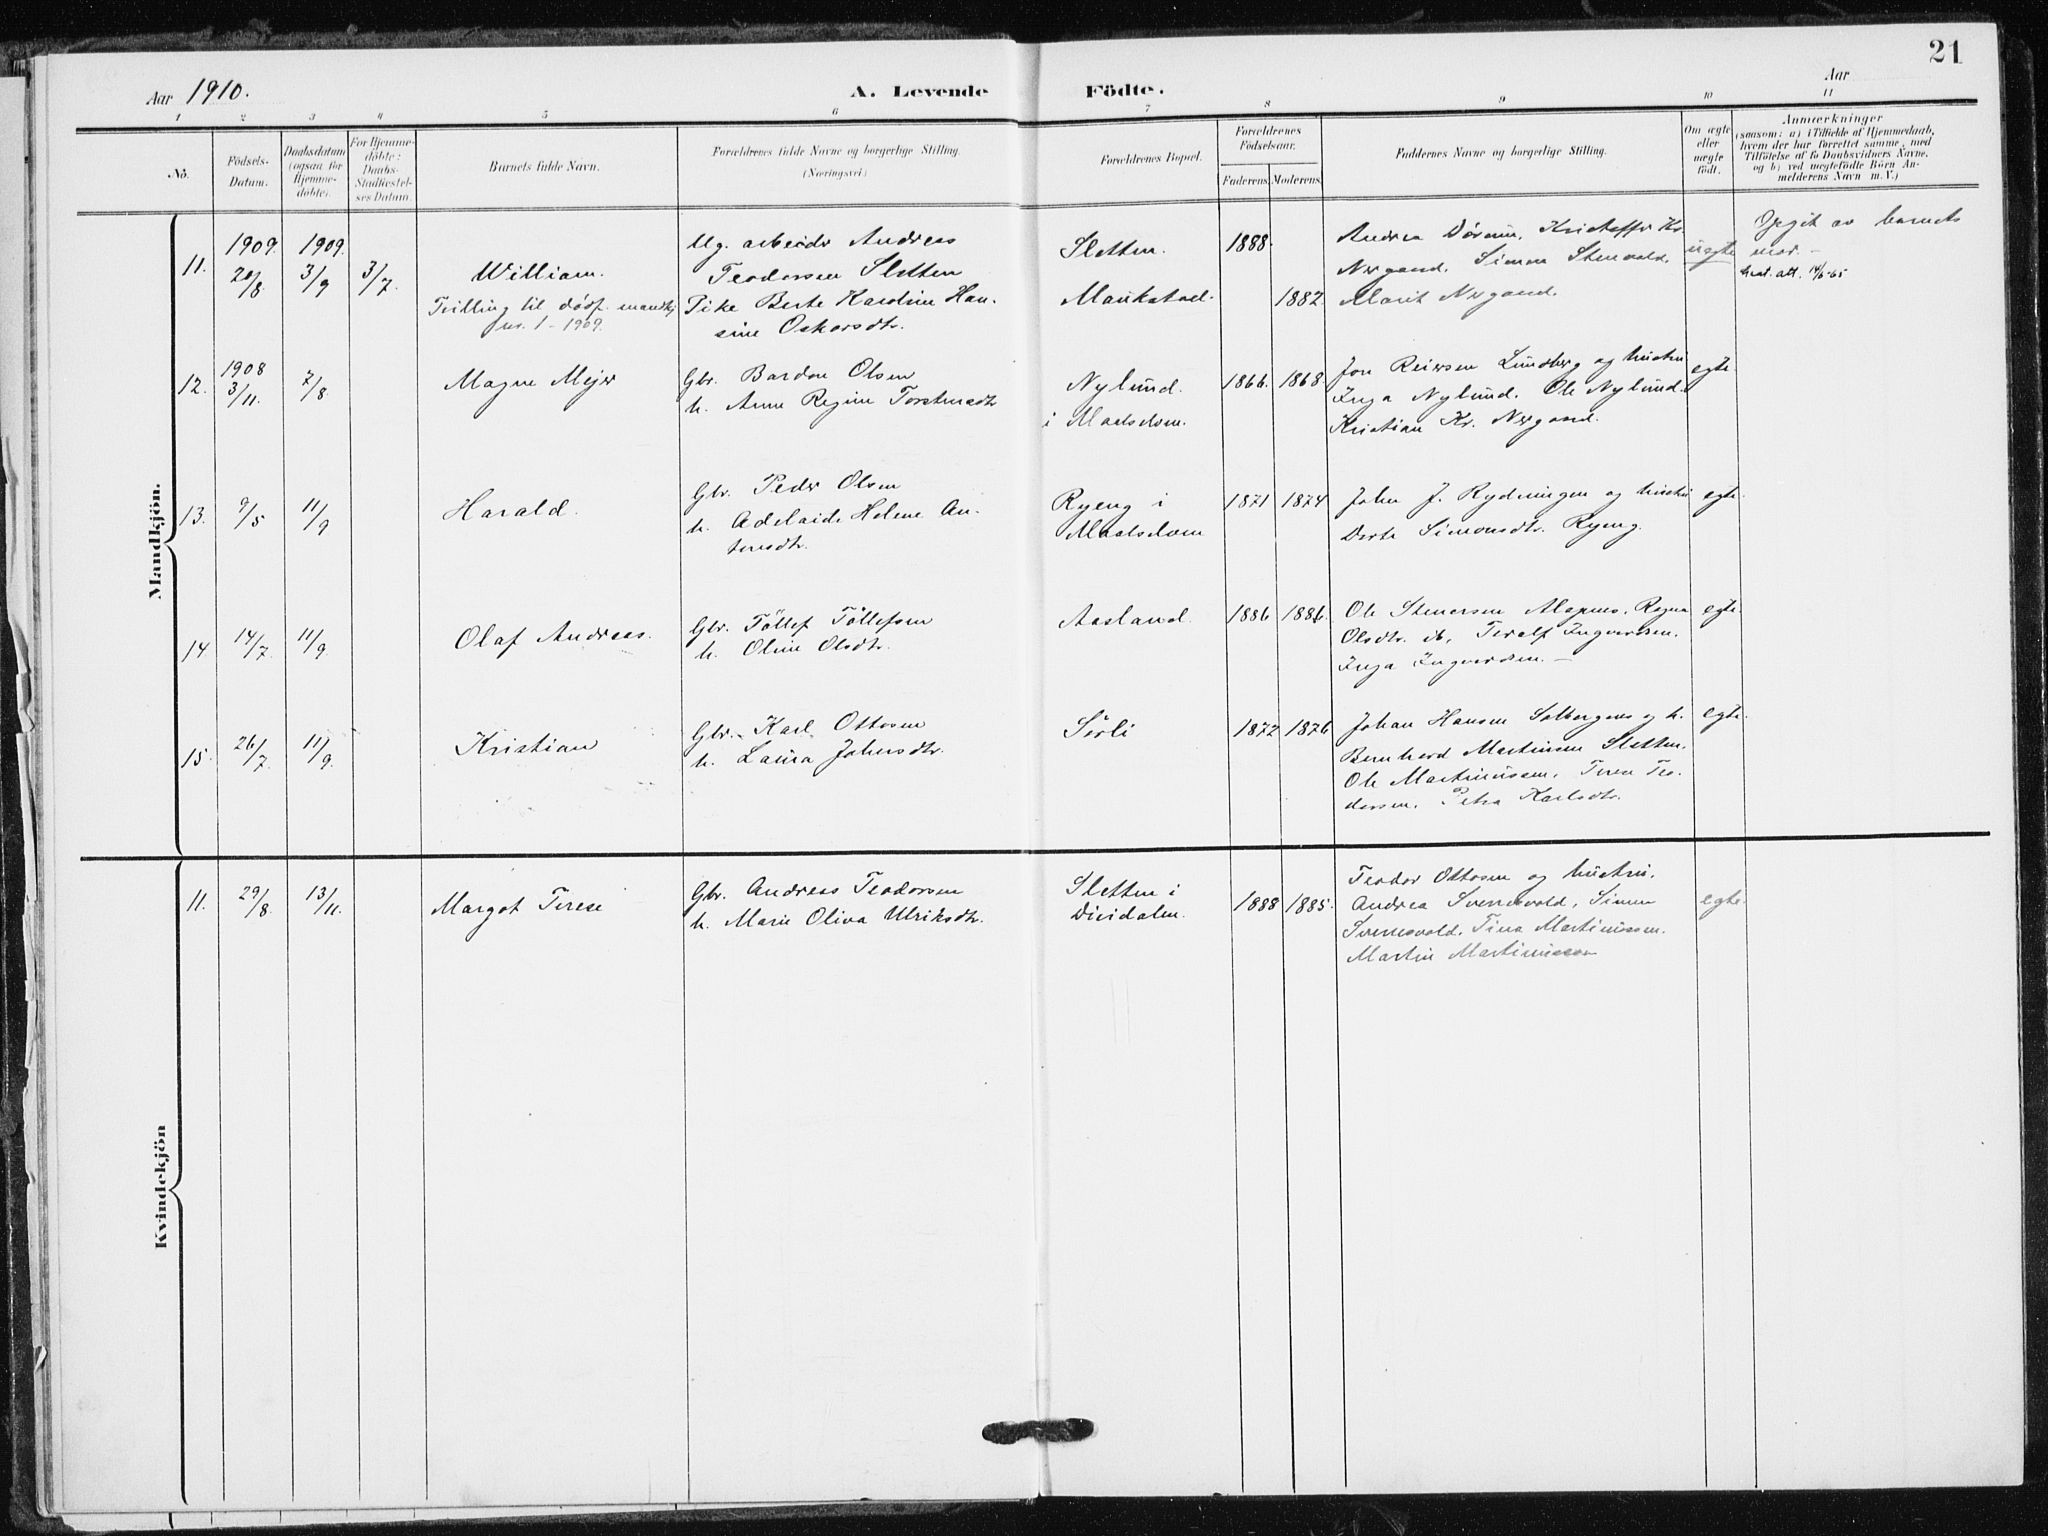 21
Aar 1910.
A. Levende Födte.
Aar
1 2 3 4 5 6 7 8 9 10 11
No.
Födsels-Datum.
Daabsdatum (ogsaa for Hjemmedöbte).
For Hjemmedöbte: Daabs-Stadfæstelses Datum.
Barnets fulde Navn.
Forældrenes fulde Navne og borgerlige Stilling. (Næringsvei)
Forældrenes Bopæl.
Forældrenes Födselsaar.
Faderens. Moderens.
Faddernes Navne og borgerlige Stilling.
Om ægte eller uægte födt.
Anmærkninger
(saasom: a) i Tilfælde af Hjemmedaab, hvem der har forrettet samme, med Tilföielse af to Daabsvidners Navne, og b) ved uægtefödte Börn Anmelderens Navn m. V.)
Mandkjön.
11. 1909. 20/8 1909. 3/9 3/7.
William.
Trilling til dødf. mandkj
nr. 1 - 1909.
Ug. arbeider Andreas
Teodorsen Sletten
Pike Berte Karoline Han-
sine Oskarsdtr.
Sletten.
Maukstad.
1888. 1882.
Andrea Kristoffer Kr.
Nergaard. Simon
Marit Nergaard.
uegte
Opgit av barnets
mor.
att. 14/6-65
12. 1908 3/11. 7/8
Magne Mejer
Gbr. Bardon Olsen
h. Anne Regine Torstensdtr
Nylund.
i Maalsdom.
1866. 1868.
Jon Reiersen Lundberg og hustru
Inga Nylund. Ole Nylund.
Kristian Kr. Nergaard.
egte.
13. 9/5 11/9
Harald.
Gbr. Peder Olsen
h. Adelaide Helene An-
tonsdtr.
Ryeng i
Maalsdom
1871 1874
Johan J. Rydningen og hustru
Dorte Simonsdtr. Ryeng.
egte.
14 14/7 11/9.
Olaf Andreas.
Gbr. Töllef Töllefsen
h. Oline Olsdtr.
Aasland.
1886 1886.
Ole Stenersen Alapmo, Ragna
Olsdtr. ib, Teralf Ingvardsen.
Inga Ingvardsen. —
egte.
15. 26/7 11/9.
Kristian
Gbr. Karl Ottosen
h. Laura Johansdtr.
Sörli
1872 1876
Johan Hansen Solbergnes og h.
Bernhard Martinsen Sletten.
Ole Martinussen. Teo-
dorsen. Petra Karlsdtr.
egte.
Kvindekjön
11. 29/8. 13/11.
Margot Terese
Gbr. Andreas Teodorsen
h. Marie Oliva Ulriksdtr.
Sletten i
Dividalen.
1888 1885.
Teodor Ottosen og hustru.
Andrea Svenesvold, Simon
Svenesvold. Tina Martinussen.
Martin Martinussen
egte.